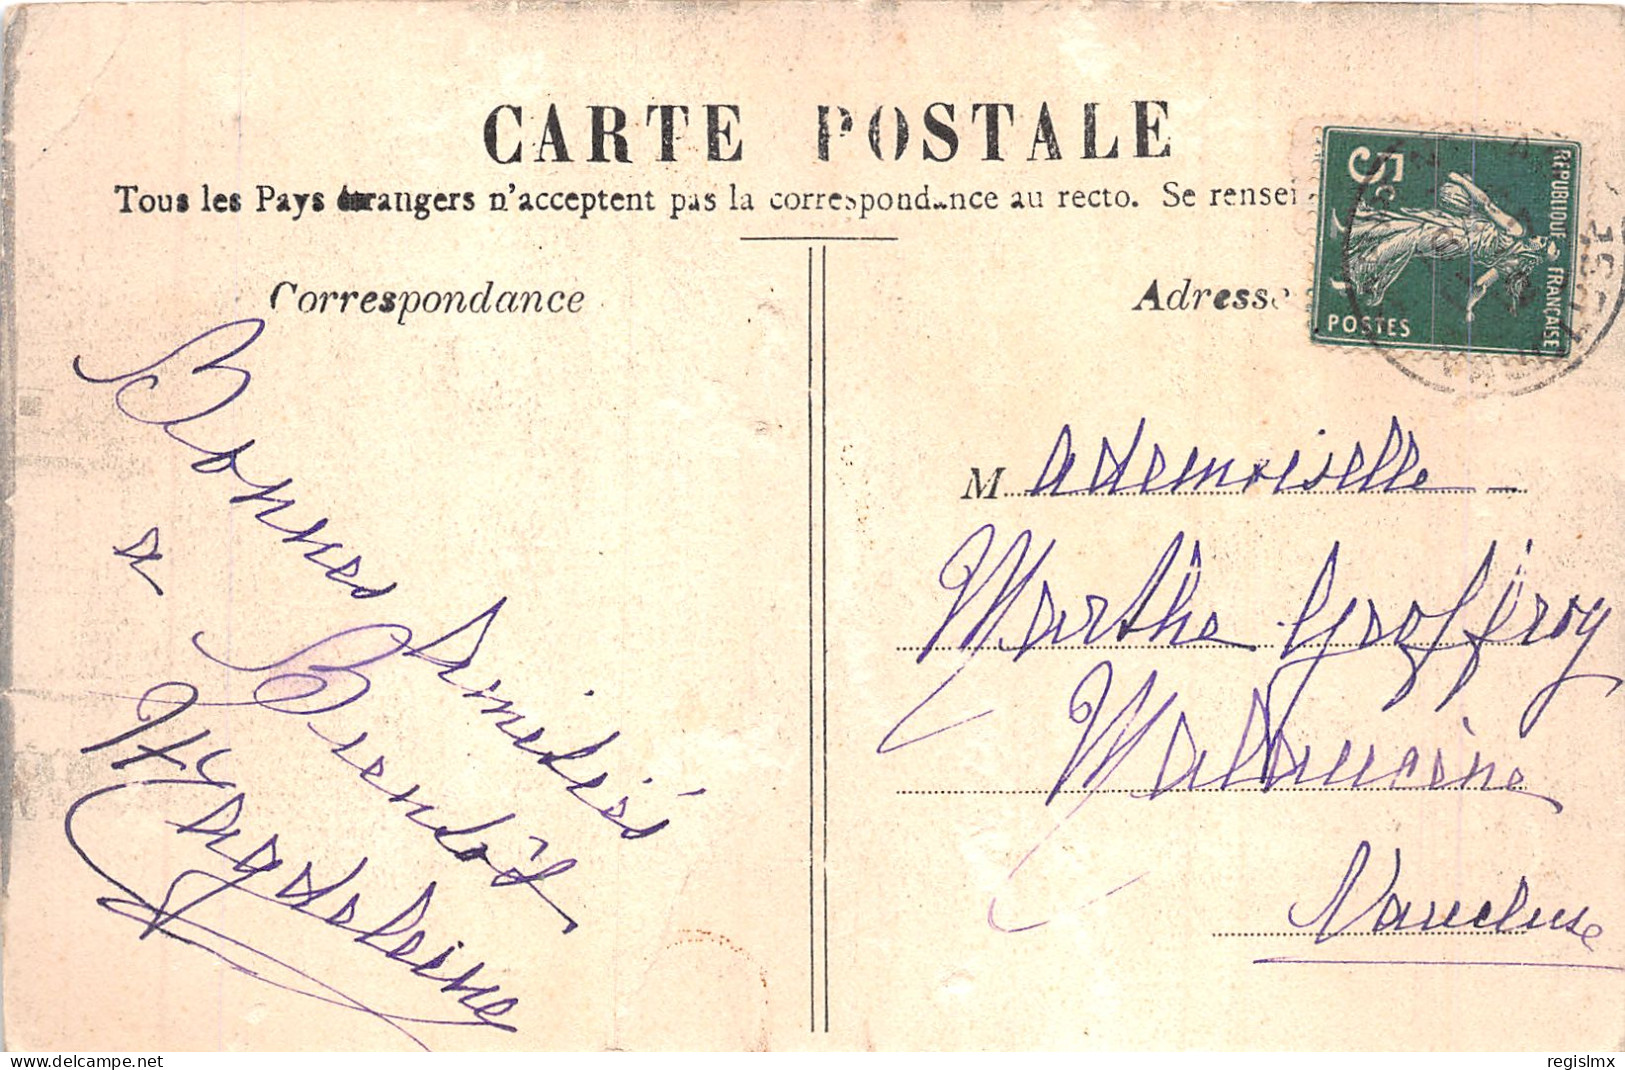 CARTE POSTALE
Tous les Pays étrangers n'acceptent pas la correspondance au recto. Se rensei
Correspondance
Adresse
5c
REPUBLIQUE FRANÇAISE
POSTES
Bonnes Amitiés
a Bientôt
Magdeleine
Mademoiselle
Marthe Geoffroy
Malaucène
Vaucluse
delcampe.net
regislmx